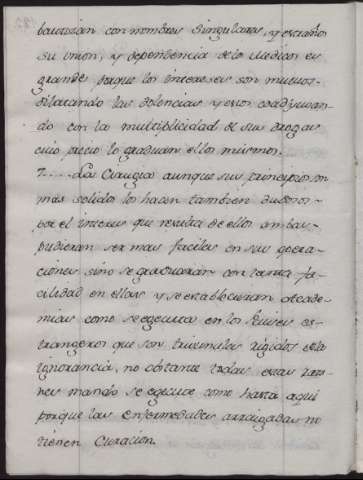 bautizan con nombres singulares, y extraños
su union, y dependencia de los Medicos es
grande porque los intereses son mutuos
dilatando las dolencias y esos coadjuvan-
do con la multiplicidad de sus drogas
cuio precio lo graduan ellos mismos.
7.....Las Cirugias aunque sus principios son
mas solidos los hacen tambien dudosos
por el interes que resulta de ellos ambas
pudieran ser mas faciles en sus opera-
ciones sino se graduaran con tanta fa-
cilidad en ellas y se establecieran Acade-
mias como se egecuta en los Reinos es-
trangeros que son tribunales rigidos de la
ignorancia, no obstante todas estas razo-
nes mando se egecute como hasta aqui
porque las enfermedades arraigadas no
tienen curacion.